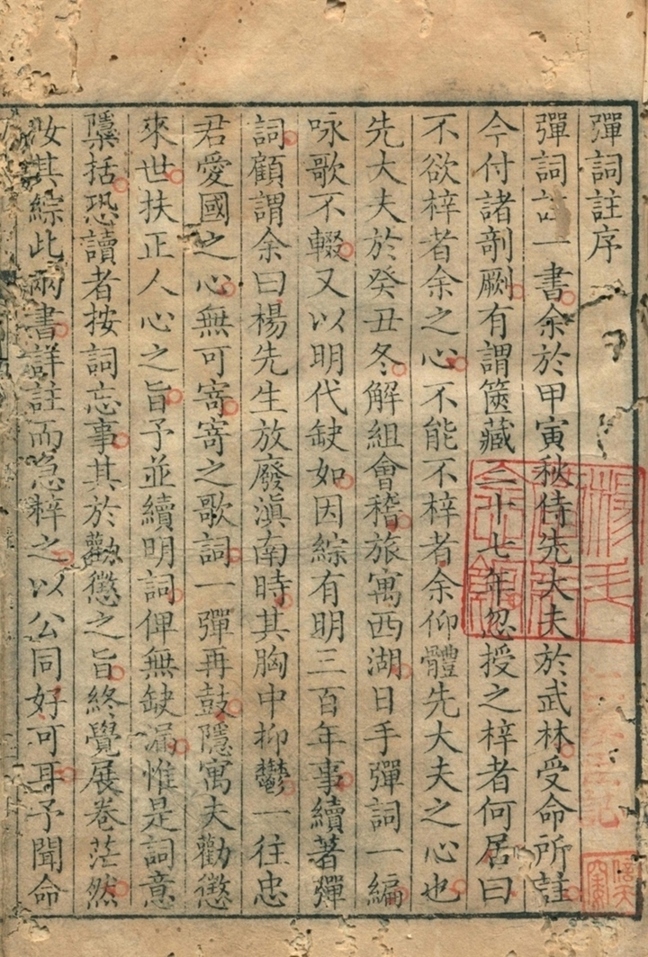 彈詞註序
彈詞註一書余於甲寅秋侍先大夫於武林受命所註
今付諸剞劂有謂篋藏二十七年忽授之梓者何居曰
不欲梓者余之心不能不梓者余仰體先大夫之心也
先大夫於癸丑冬解組會稽旅寓西湖日手彈詞一編
咏歌不輟又以明代缺如因綜有明三百年事續著彈
詞顧謂余曰楊先生放廢滇南時其胸中抑鬱一往忠
君愛國之心無可寄寄之歌詞一彈再鼓隱寓夫勸懲
來世扶正人心之旨予並續明詞俾無缺漏惟是詞意
檃括恐讀者按詞忘事其於勸懲之旨終覺展卷茫然
汝其綜此兩書詳註而急梓之以公同好可耳予聞命